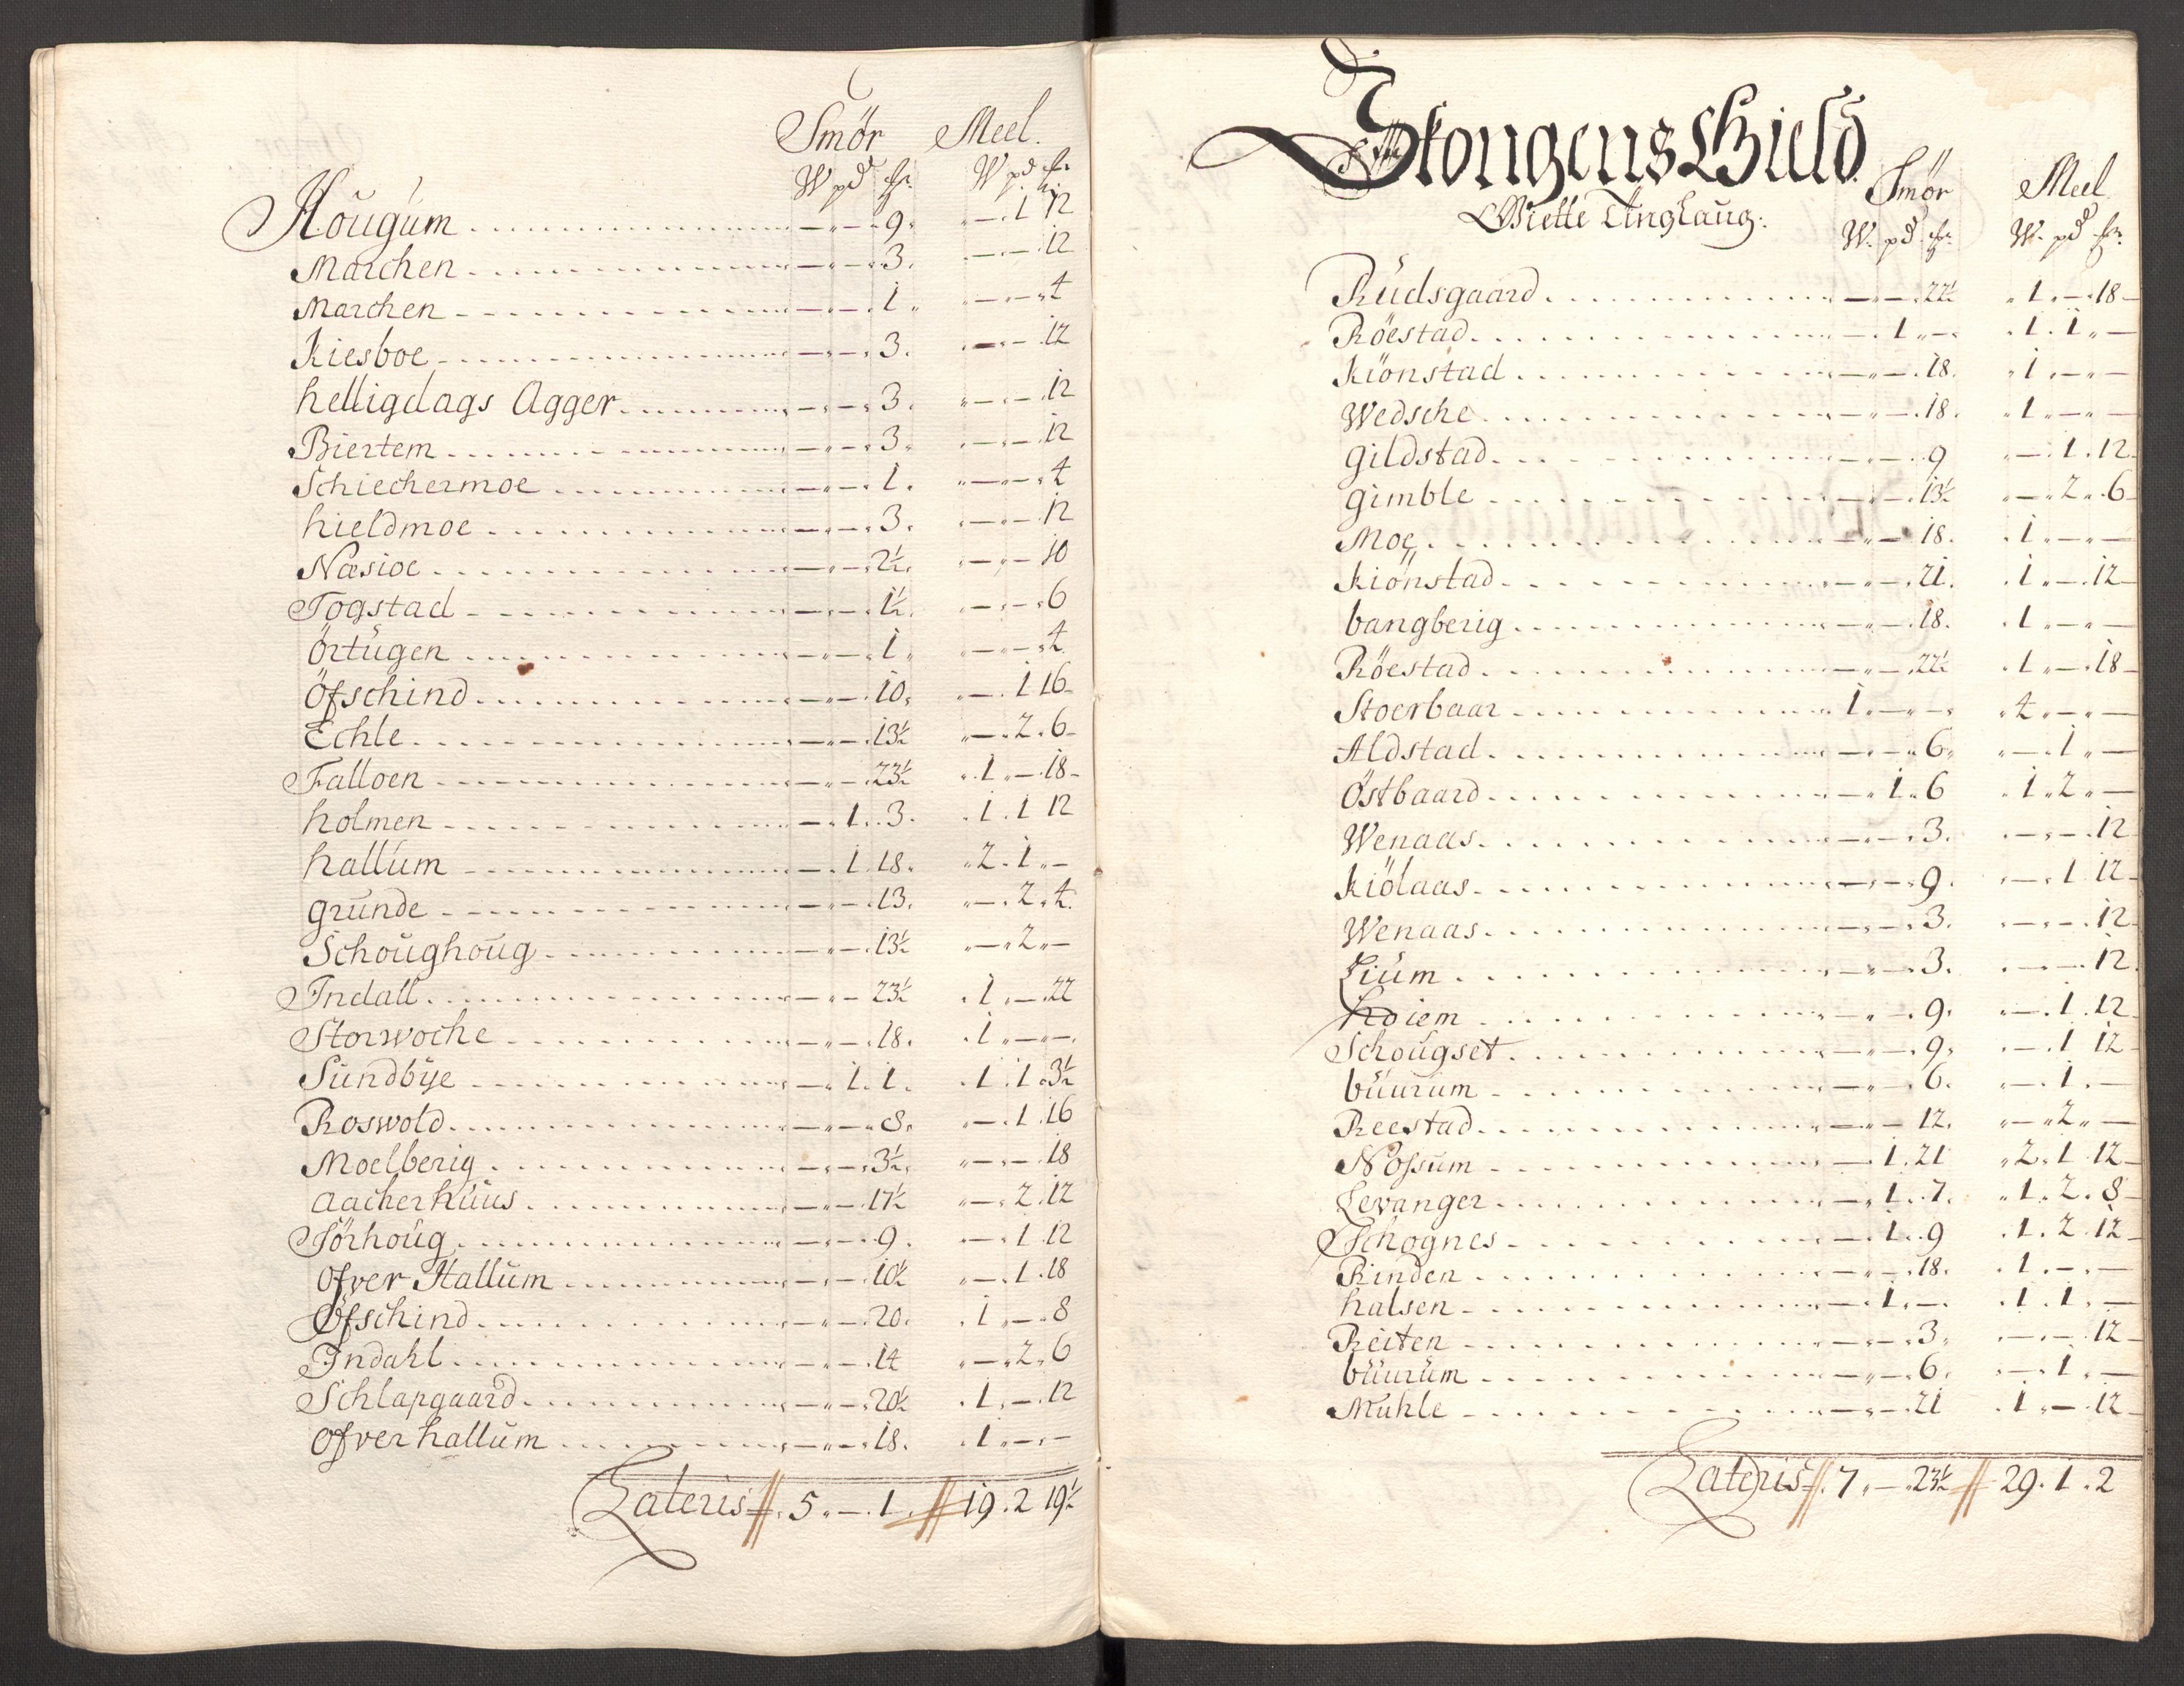 Smör Meel.
W pd mr. W pd mr.
Hougum — — 9. — 1 12
Marchen — — 3. — — 12
Marchen — — 1. — — 4
Kiesboe — — 3. — — 12
helligdags Agger — — 3. — — 12
Biertem — — 3. — — 12
Schiechermoe — — 1. — — 4
hieldmoe — — 3. — — 12
Næsioe — — 2½. — — 10
Togstad — — 1½. — — 6
Örtugen — — 1. — — 4
Öfschind — — 10. — 1 16
Echle — — 13½ — 2. 6
Falloen — — 23½ 1. — 18
holmen — 1. 3. 1. 1 12
hallum — 1. 18. 2. 1. —
grunde — — 13. — 2. 4.
Schoughoug — — 13½ — 2. —
Indall — — 23½ 1. — 22
Storwoche — — 18. 1. — —
Sundbye — 1. 1. 1. 1. 3½
Roswold — — 8. — 1. 16
Moelberig — — 3½. — — 18
Aacherhuus — — 17½ — 2. 12
Sörhoug — — 9. — 1 12
Ofver Hallum — — 10½ — 1. 18
Öfschind — — 20. 1. — 8
Indahl — — 14 — 2. 6
Schlapgaard — — 20½ 1. — 12
Ofver hallum — — 18. 1. — —
Lateris 5. — 1. 19. 2 19½
Stongens Gield
Smör Meel
Tinglaug.
W. pd. mr. W. pd. mr.
Rudsgaard — — 22½ 1. — 18
Röestad — 1. — 1. 1. —
Kiönstad — — 18. 1. — —
Wedsche — — 18. 1. — —
gildstad — — 9 — 1. 12
gimble — — 13½ — 2. 6
Moe — — 18. 1. — —
Kiönstad — — 21. 1. — 12
bangberig — — 18. 1. — —
Röestad — — 22½ 1. — 18
Stoerbaar 1. — — 4. — —
Aldstad — — 6. — 1. —
Östbaard — 1. 6 1. 2. —
Wenaas — — 3. — — 12
Kiölaas — — 9. — 1 12
Wenaas — — 3. — — 12
Lium — — 3. — — 12
hoiem — — 9. — 1. 12
Schougset — — 9. — 1 12
büurum — — 6. — 1. —
Reestad — — 12. — 2. —
Nossum — 1. 21 2. 1 12
Levanger — 1. 7. 1. 2. 8
Schognes — 1. 9 1. 2. 12
Rinden — — 18. 1. — —
halsen — 1. — 1. 1. —
Reiten — — 3. — — 12
büurum — — 6. — 1. —
Muhle — — 21 1. — 12
Lateris 7. — 23½ 29. 1. 2